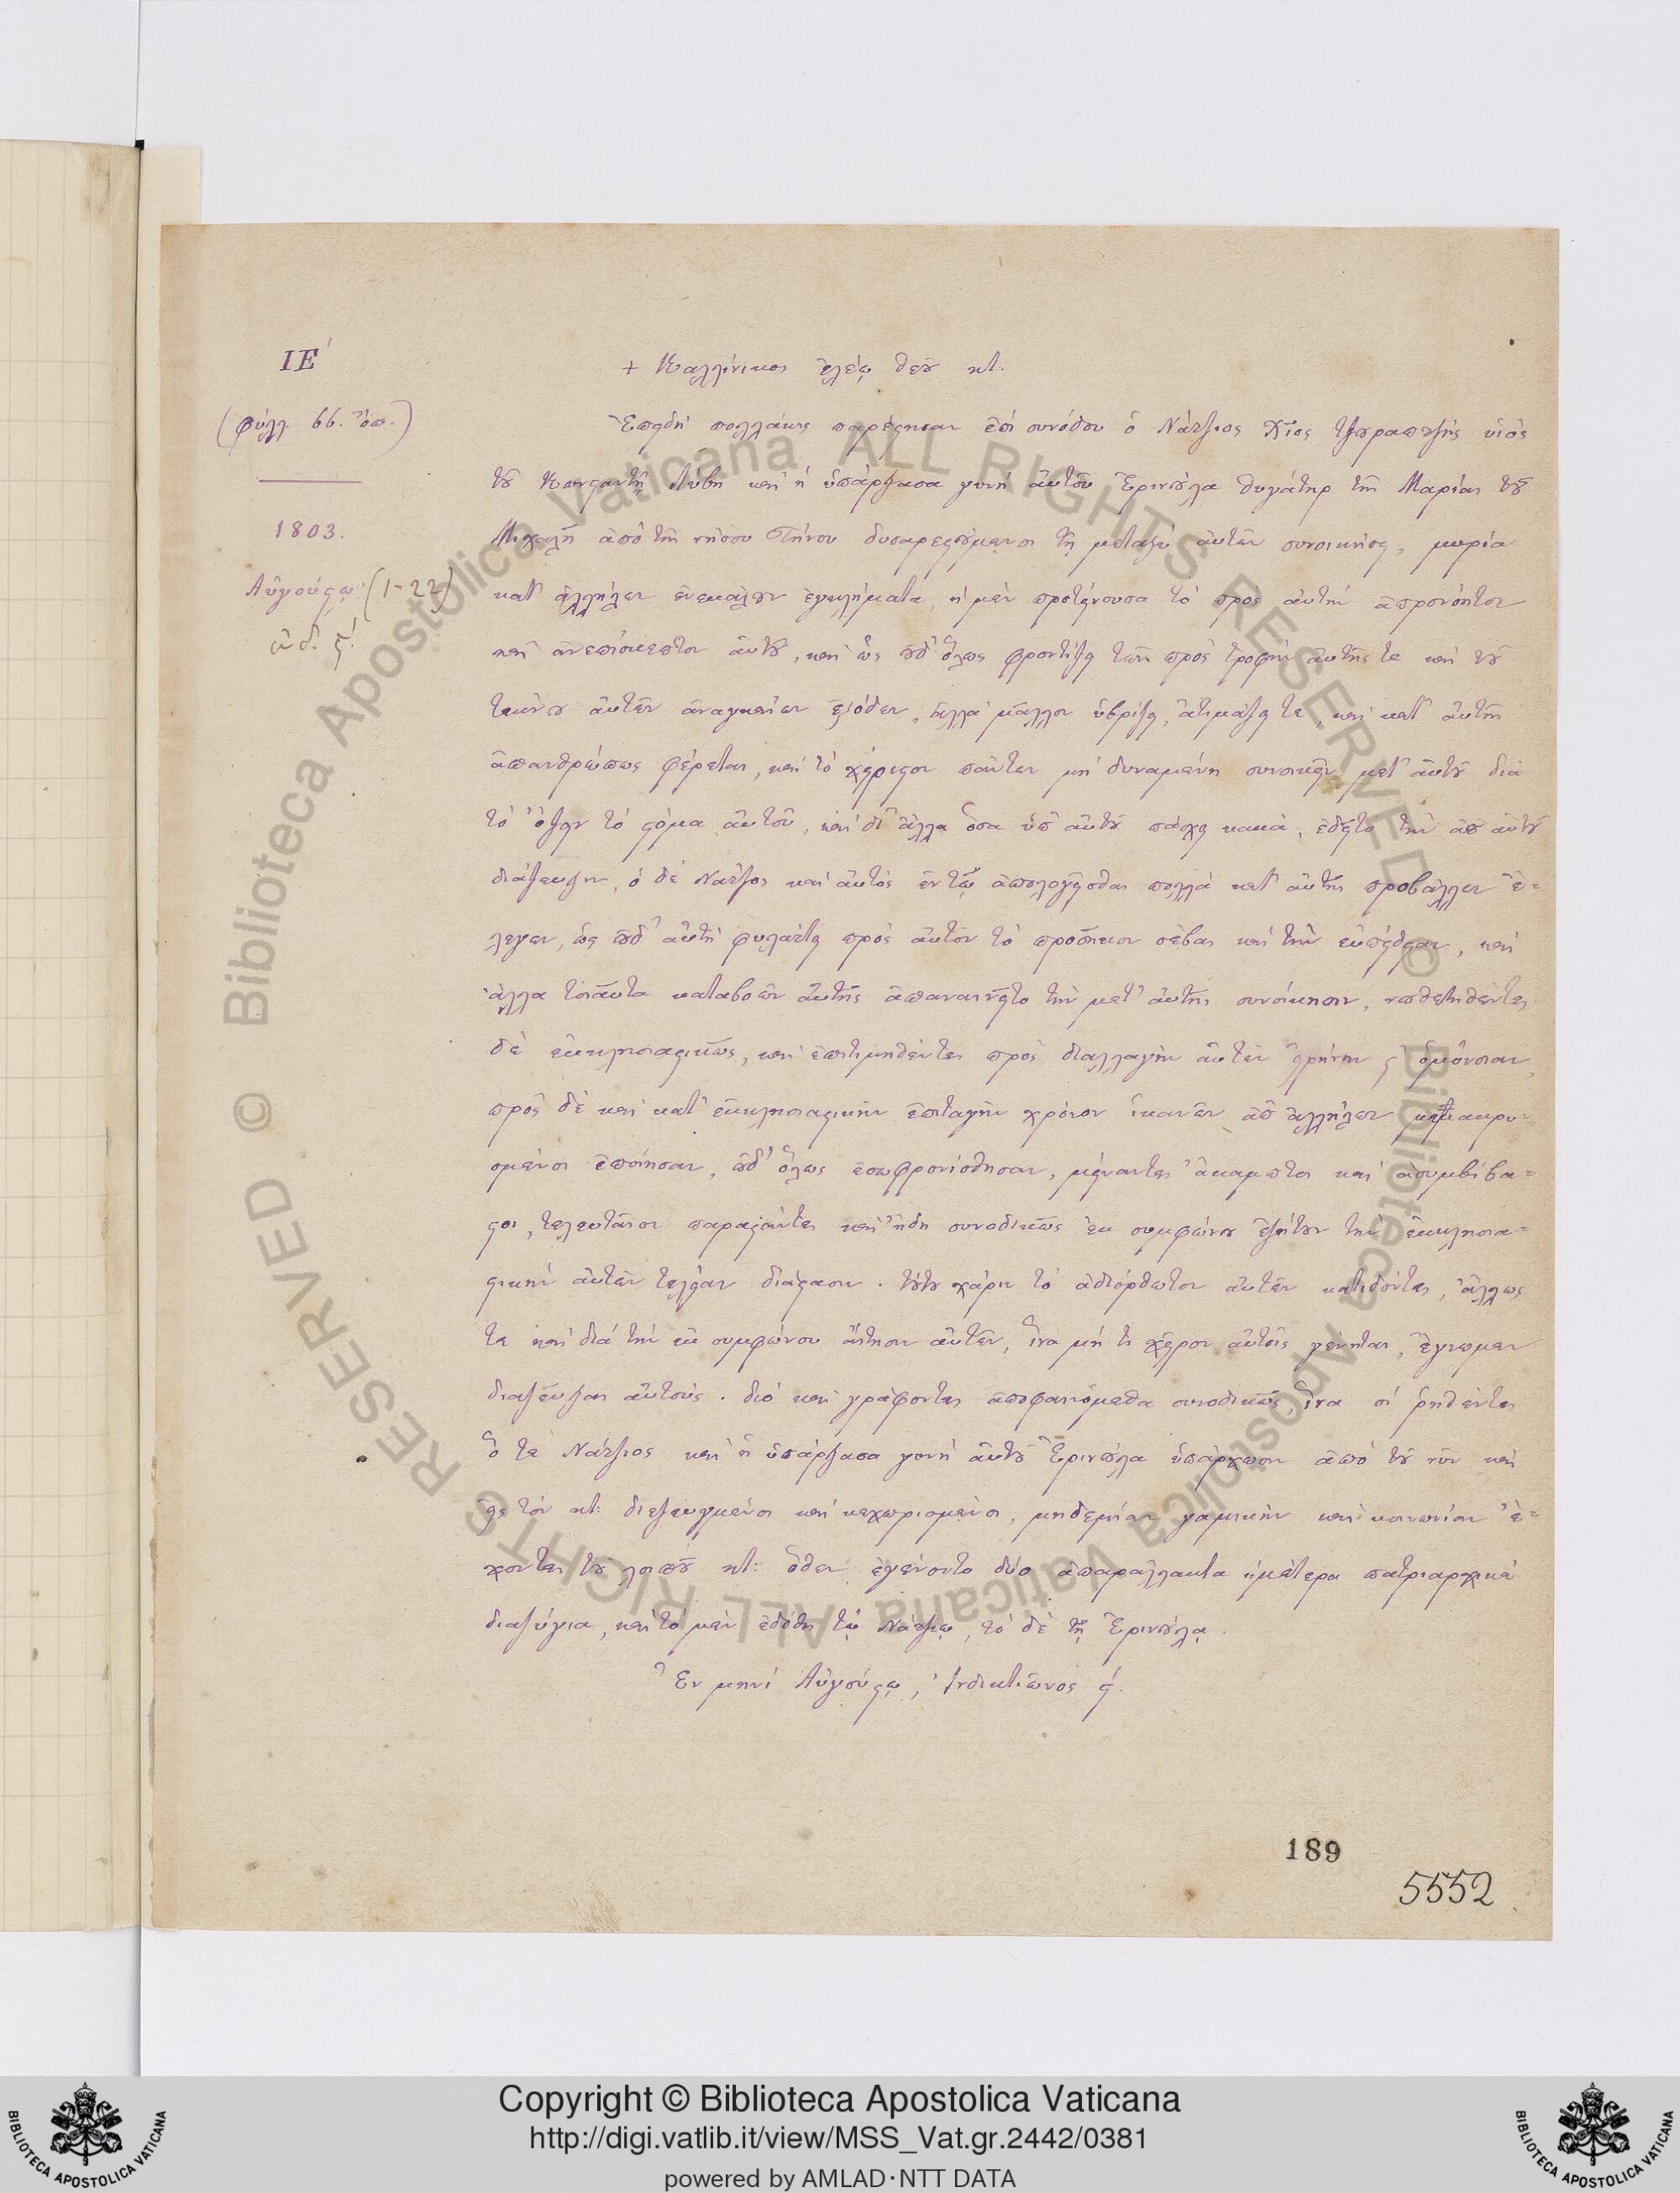 ΙΕ´
(φύλλ. 66. ὄπ.)
1803.
Αὐγούστῳ (1-22)
ἰνδ. ϛ´.
+ Καλλίνικος ἐλέῳ θεοῦ κτ.
Ἐπειδὴ πολλάκις παρέστησαν ἐπὶ συνόδου ὁ Νάτζιος Χῖος υἱὸς
τοῦ Κωνσταντῆ Λύβη καὶ ἡ ὑπάρξασα γυνὴ αὐτοῦ Ἐρινοῦλα θυγάτηρ τῆς Μαρίας τοῦ
Μιχαλῆ ἀπὸ τῆς νήσου Τήνου δυσαρεστούμενοι τῇ μεταξὺ αὐτῶν συνοικήσει, μυρία
κατ' ἀλλήλων ἐνεκάλουν ἐγκλήματα, ἡ μὲν προτείνουσα τὸ πρὸς αὐτὴν ἀπρονόητον
καὶ ἀνεπίσκεπτον αὐτοῦ, καὶ ὡς οὐδ' ὅλως φροντίζει τῶν πρὸς τροφὴν αὐτῆς τε καὶ τοῦ
τέκνου αὐτῶν ἀναγκαίων ἐξόδων, ἀλλὰ μᾶλλον ὑβρίζει, ἀτιμάζει τε, καὶ κατ' αὐτῆς
ἀπανθρώπως φέρεται, καὶ τὸ χείριστον πάντων μὴ δυναμένη συνοικεῖν μετ' αὐτοῦ διὰ
τὸ ὄζειν τὸ στόμα αὐτοῦ, καὶ δι' ἄλλα ὅσα ὑπ' αὐτοῦ πάσχει κακὰ, ἐδεῖτο τὴν ἀπ' αὐτοῦ
διάζευξιν, ὁ δὲ Νάτζιος καὶ αὐτὸς ἐν τῷ ἀπολογεῖσθαι πολλὰ κατ' αὐτῆς προβάλλων ἔ-
λεγεν, ὡς οὐδ' αὐτὴ φυλάττει πρὸς αὐτὸν τὸ προσῆκον σέβας καὶ τὴν εὐπείθειαν, καὶ
ἄλλα τοιαῦτα καταβοῶν αὐτῆς ἀπαναινεῖτο τὴν μετ' αὐτῆς συνοίκησιν, νουθετηθέντες
δὲ ἐκκλησιαστικῶς, καὶ ἐπιτιμηθέντες πρὸς διαλλαγὴν αὐτῶν εἰρήνην ϛ ὁμόνοιαν,
πρὸς δὲ καὶ κατ' ἐκκλησιαστικὴν ἐπιταγὴν χρόνον ἱκανὸν ἀπ' ἀλλήλων μεμακρυ-
σμένοι ἐποίησαν, οὐδ' ὅλως ἐσωφρονίσθησαν, μείναντες ἄκαμπτοι καὶ ἀσυμβίβα-
στοι, τελευταῖον παραστάντες καὶ ἤδη συνοδικῶς ἐκ συμφώνου ἐζήτουν τὴν ἐκκλησια-
στικὴν αὐτῶν τελείαν διάστασιν. τούτου χάριν τὸ ἀδιόρθωτον αὐτῶν κατιδόντες, ἄλλως
τε καὶ διὰ τὴν ἐκ συμφώνου αἴτησιν αὐτῶν, ἵνα μή τι χεῖρον αὐτοῖς γένηται, ἔγνωμεν
διαζεῦξαι αὐτούς. διὸ καὶ γράφοντες ἀποφαινόμεθα συνοδικῶς, ἵνα οἱ ῥηθέντες
ὅ τε Νάτζιος καὶ ἡ ὑπάρξασα γυνὴ αὐτοῦ Ἐρινοῦλα ὑπάρχωσιν ἀπὸ τοῦ νῦν καὶ
εἰς τὸν κτ: διεζευγμένοι καὶ κεχωρισμένοι, μηδεμίαν γαμικὴν καὶ κοινωνίαν ἔ-
χοντες τοῦ λοιποῦ κτ: ὅθεν ἐγένοντο δύο ἀπαράλλακτα ἡμέτερα πατριαρχικὰ
διαζύγια, καὶ τὸ μὲν ἐδόθη τῷ Νάτζιῳ, τὸ δὲ τῇ Ἐρινοῦλᾳ.
Ἐν μηνὶ Αὐγούστῳ, Ἰνδικτιῶνος ϛ´.
189
5552
© Biblioteca Apostolica Vaticana ALL RIGHTS RESERVED © Biblioteca Apostolica Vaticana ALL RIGHTS RESERVED
BIBLIOTECA APOSTOLICA VATICANA
Copyright © Biblioteca Apostolica Vaticana
http://digi.vatlib.it/view/MSS_Vat.gr.2442/0381
powered by AMLAD·NTT DATA
BIBLIOTECA APOSTOLICA VATICANA